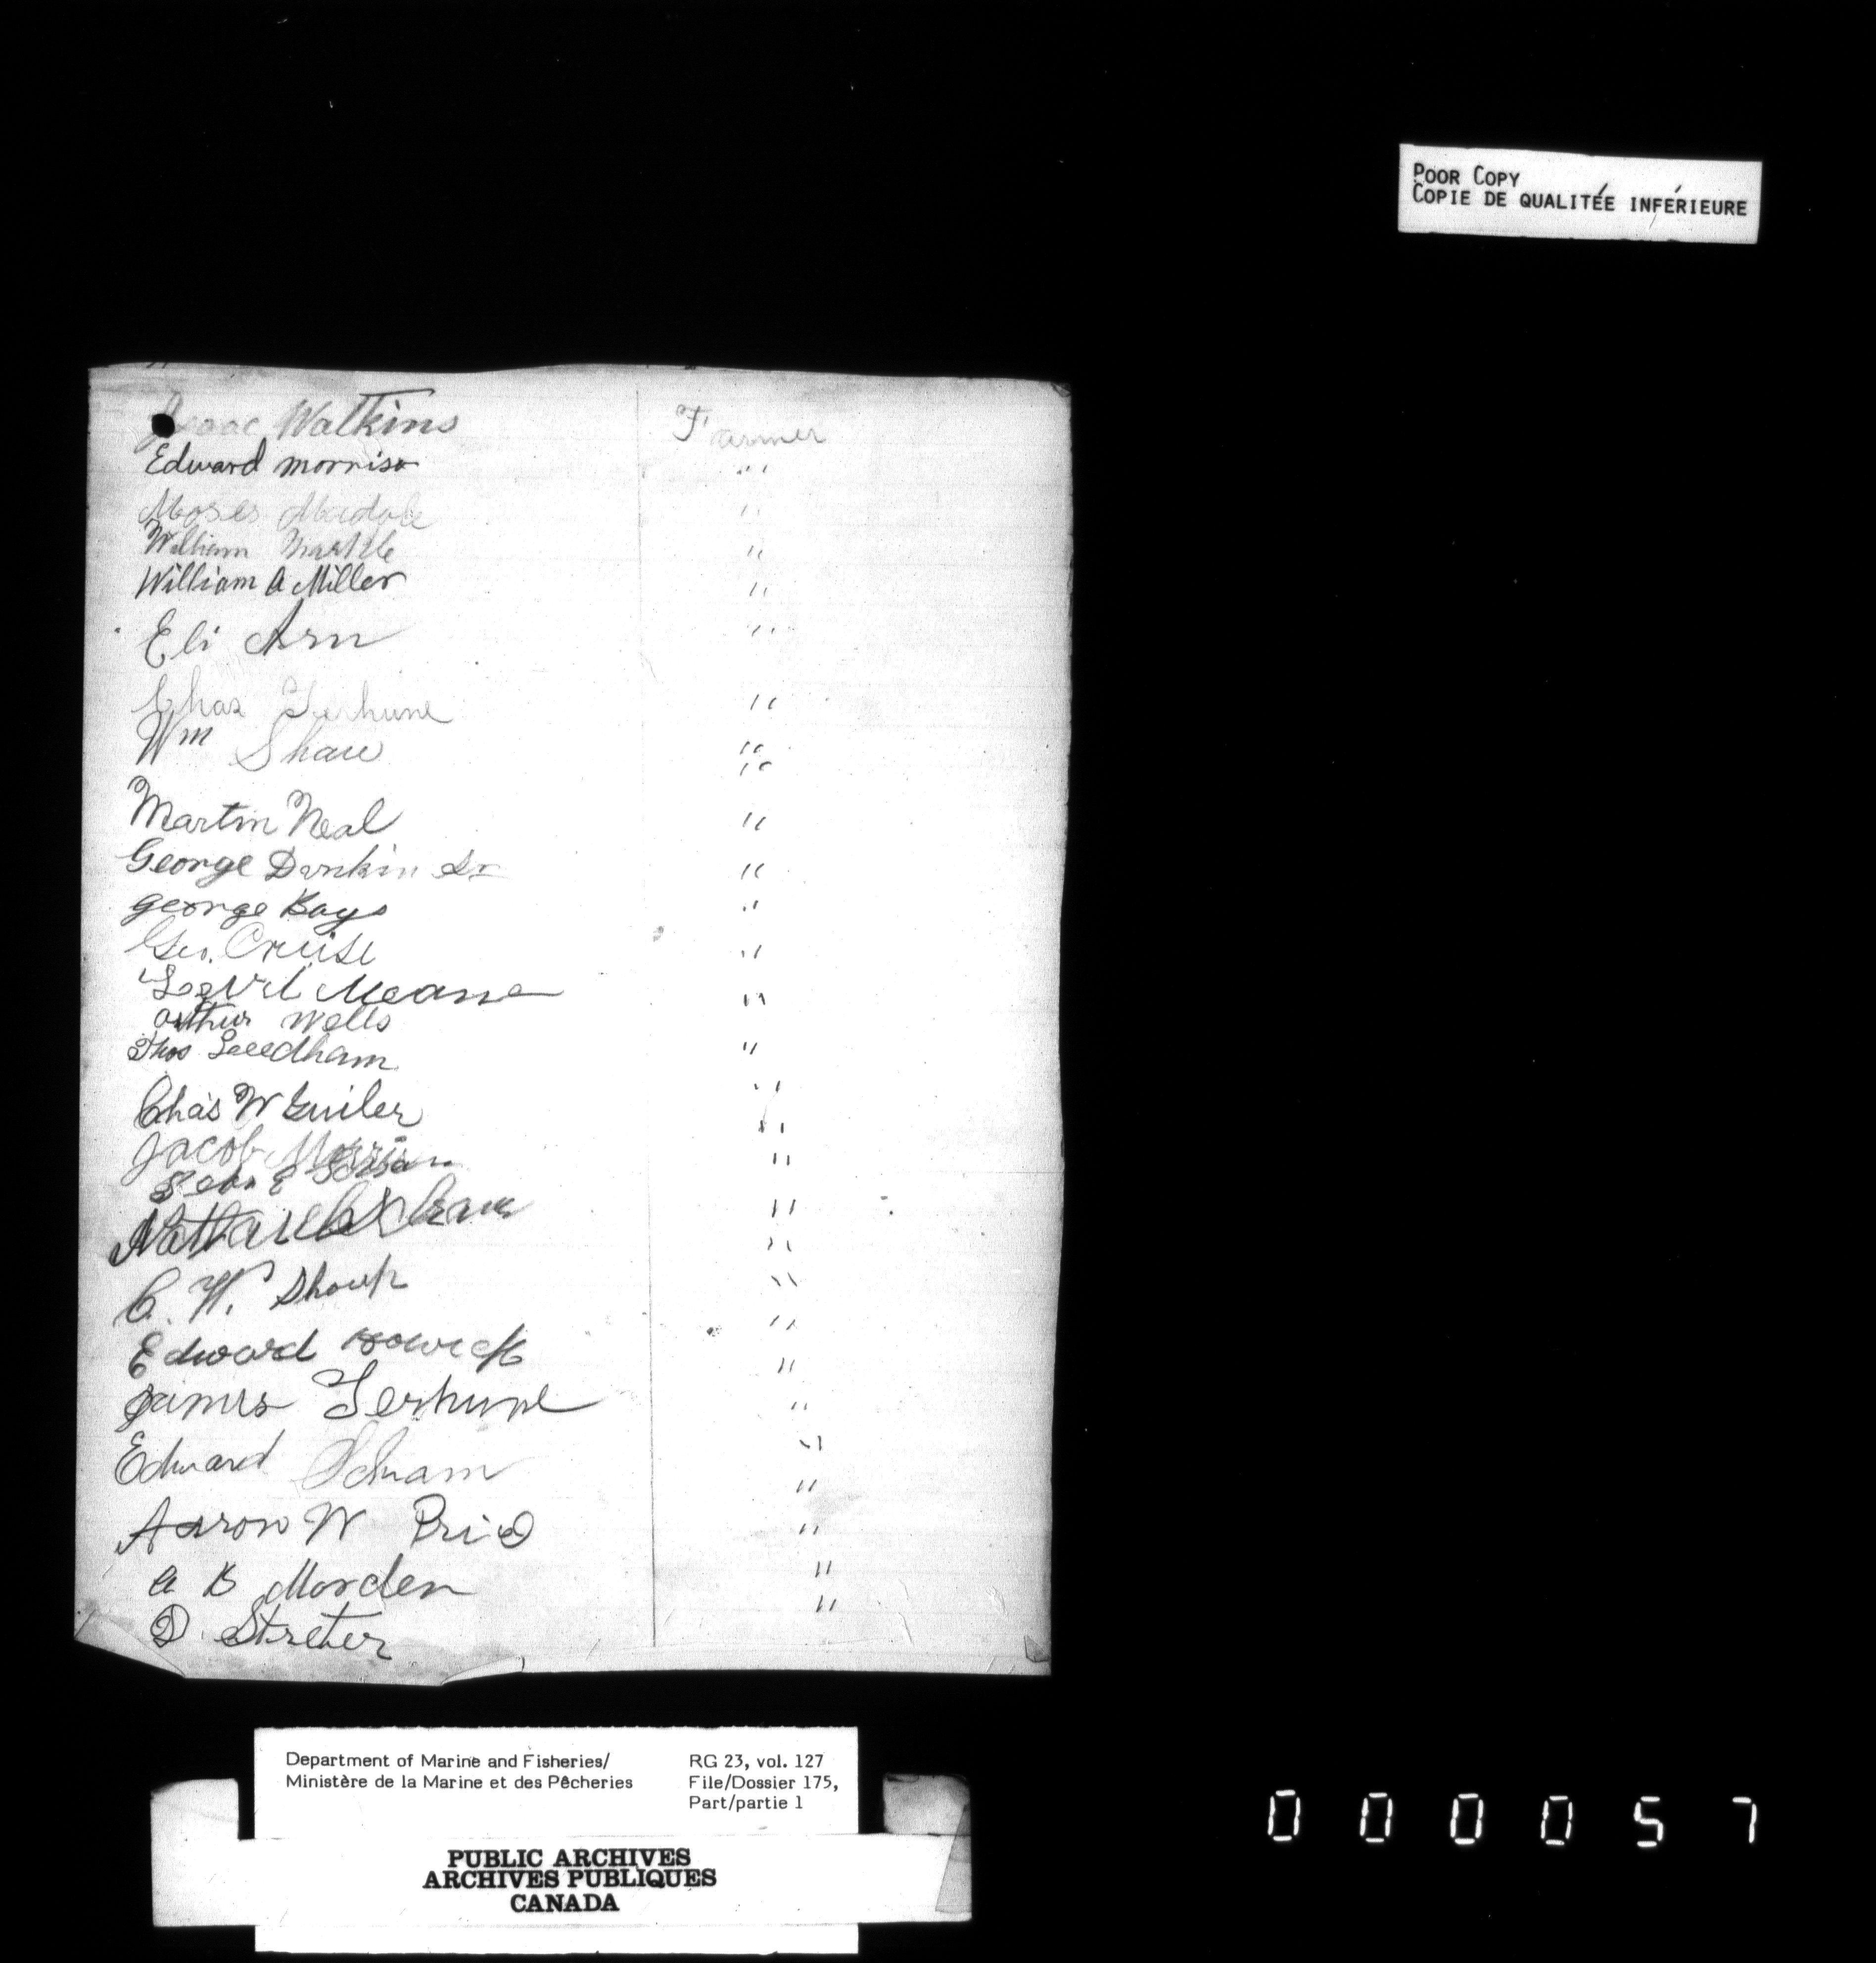 POOR COPY
COPIE DE QUALITÉE INFÉRIEURE
Isaac Watkins Farmer
Edward morriso "
Moses "
William "
William A Miller "
Eli Arn "
Chas Terhune "
Wm Shaw "
"
Martin Neal "
George Dankin Sr "
george Bays "
Geo. Cruise "
Means "
arthur Wells
Thos Leeedham "
Chas W Guiler "
"
Jacob "
"
"
C. W. Shoup "
"
Edward "
James Terhune "
Edward "
"
Aaron W "
a B Morden "
D. Streter "
Department of Marine and Fisheries/ RG 23, vol. 127
Ministère de la Marine et des Pêcheries File/Dossier 175,
Part/partie 1
PUBLIC ARCHIVES
ARCHIVES PUBLIQUES
CANADA
000057